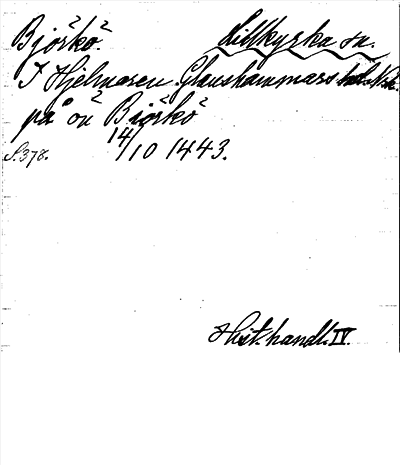 Björkö. Lillkyrka sn.
I Hjelmaren. Glanshammars hd. Nke.
på ön Biörkö
S. 378. 14/10 1443.
Hist. handl. IV.